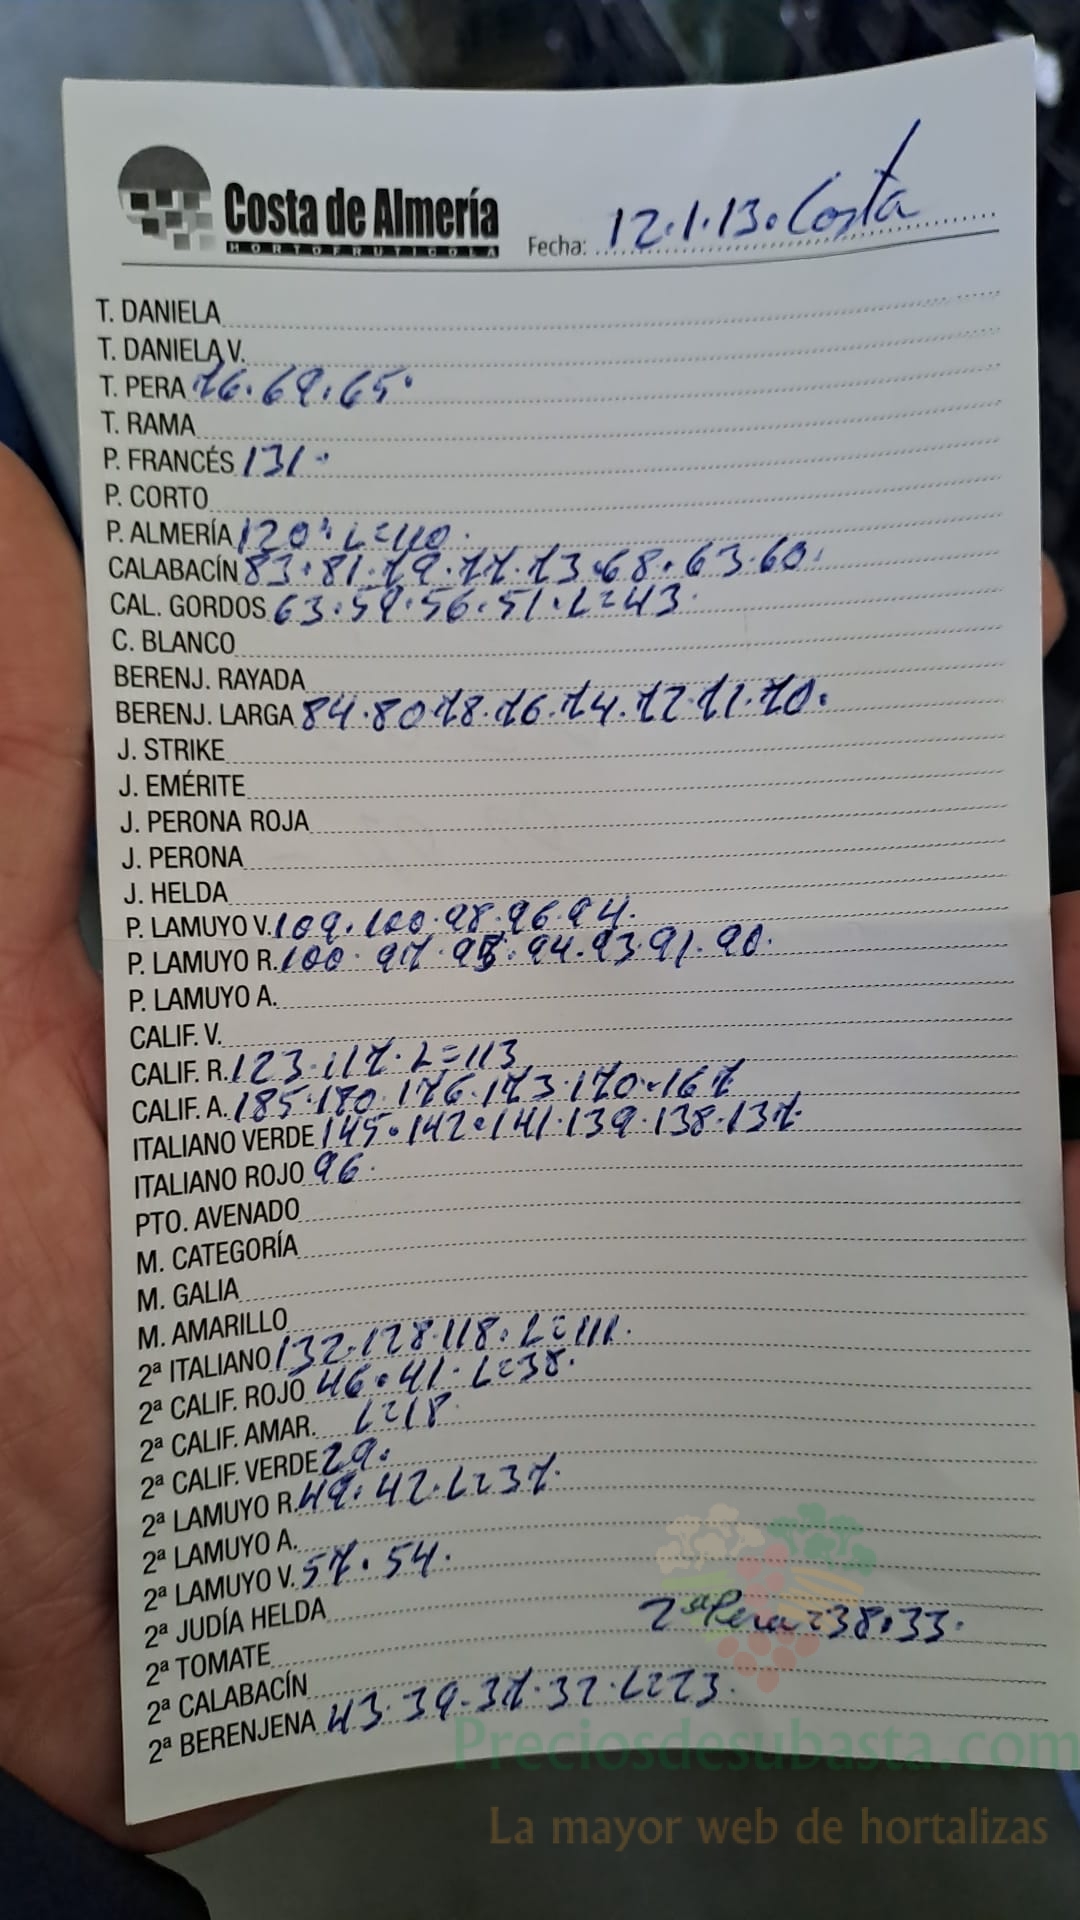 Costa de Almería
HORTOFRUTICOLA
Fecha: 12.1.13. Costa
T. DANIELA
T. DANIELA V.
T. PERA 76.69.65.
T. RAMA
P. FRANCÉS 131.
P. CORTO
P. ALMERÍA 120. L=110.
CALABACÍN 83.81.79.77.73.68.63.60.
CAL. GORDOS 63.59.56.51.L=43.
C. BLANCO
BERENJ. RAYADA
BERENJ. LARGA 84.80.78.76.74.72.71.70.
J. STRIKE
J. EMÉRITE
J. PERONA ROJA
J. PERONA
J. HELDA
P. LAMUYO V. 109.100.98.96.94.
P. LAMUYO R. 100.97.95.94.93.91.90.
P. LAMUYO A.
CALIF. V.
CALIF. R. 123.117.L=113
CALIF. A. 185.180.176.173.170.167
ITALIANO VERDE 145.142.141.139.138.137.
ITALIANO ROJO 96.
PTO. AVENADO
M. CATEGORÍA
M. GALIA
M. AMARILLO
2ª ITALIANO 132.128.118.L=111.
2ª CALIF. ROJO 46.41.L=38.
2ª CALIF. AMAR. L=18
2ª CALIF. VERDE 29.
2ª LAMUYO R. 49.42.L=37.
2ª LAMUYO A.
2ª LAMUYO V. 57.54.
2ª JUDÍA HELDA
2ª Pera=38.33.
2ª TOMATE
2ª CALABACÍN
2ª BERENJENA 43.39.37.32.L=23.
Preciosdesubasta.com
La mayor web de hortalizas